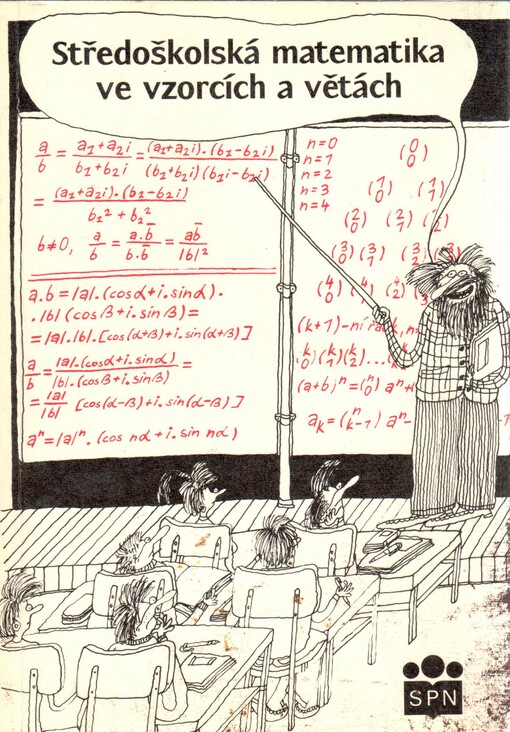 Středoškolská matematika
ve vzorcích a větách
a/b = (a₁+a₂i)/(b₁+b₂i) = (a₁+a₂i).(b₁-b₂i)/(b₁+b₂i)(b₁i-b₂i)
= (a₁+a₂i).(b₁-b₂i)/(b₁²+b₂²)
b≠0, a/b = a.b̄/b.b̄ = ab̄/|b|²
a.b = |a|.(cosα+i.sinα).
.|b|(cosß+i.sinß)=
=|a|.|b|.[cos(α+ß)+i.sin(α+ß)]
a/b = |a|.(cosα+i.sinα)/|b|.(cosß+i.sinß) =
= |a|/|b| [cos(α-ß)+i.sin(α-ß)]
aⁿ=|a|ⁿ.(cos nα+i.sin nα)
n=0 (0 0)
n=1
n=2 (1 0) (1 1)
n=3
n=4 (2 0) (2 1)
(3 0) (3 1) (3 2)
(4 0) (4 1) (4 2)
(k+1)-ní
(k 1) (k 2) ...
(a+b)ⁿ=(n 0) aⁿ
aₖ=(n k-1) aⁿ-
SPN